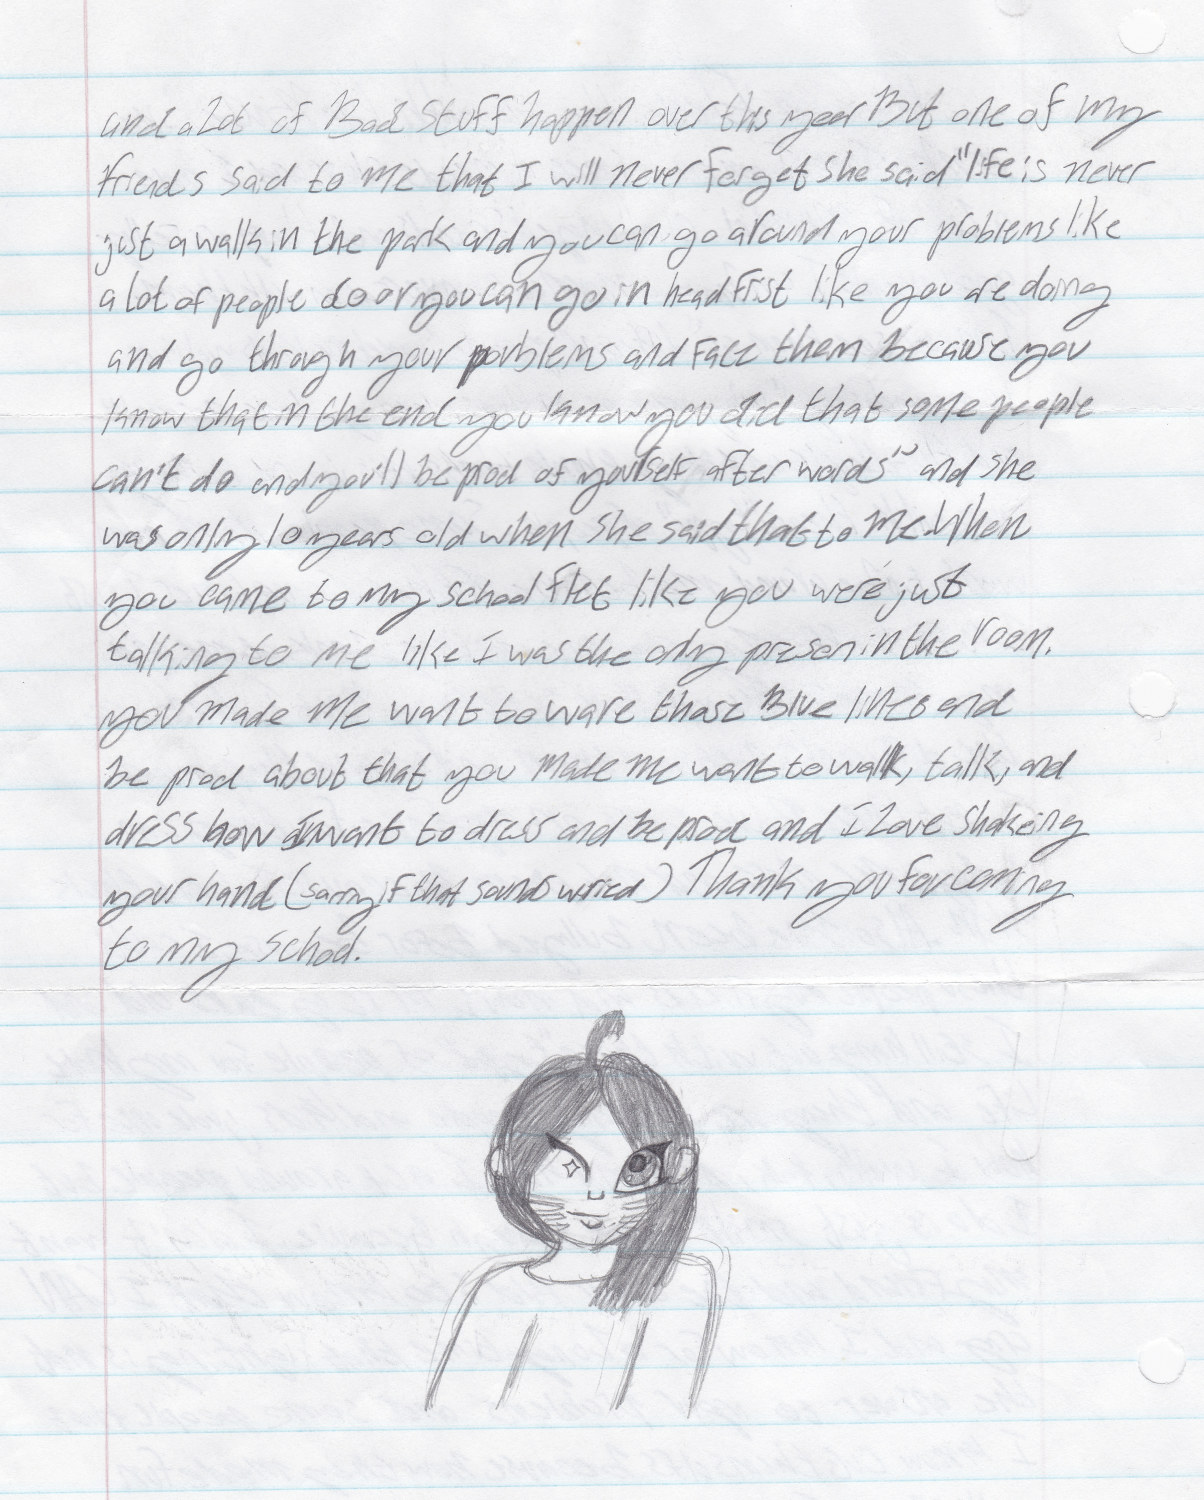 and a lot of Bad Stuff happen over this year But one of my
friends said to me that I will never forget she said "life is never
just a walk in the park and you can go around your problems like
a lot of people do or you can go in head frist like you are doing
and go through your porblems and face them because you
know that in the end you know you did that some people
can't do and you'll be prod of yourself after words" and she
was only 10 years old when she said that to me. When
you came to my school flet like you were just
talking to me like I was the only preson in the room.
you made me want to ware those Blue lines and
be prod about that you made me want to walk, talk, and
dress how I want to dress and be prod and I Love shakeing
your hand (sorry if that sounds weried) Thank you for coming
to my school.